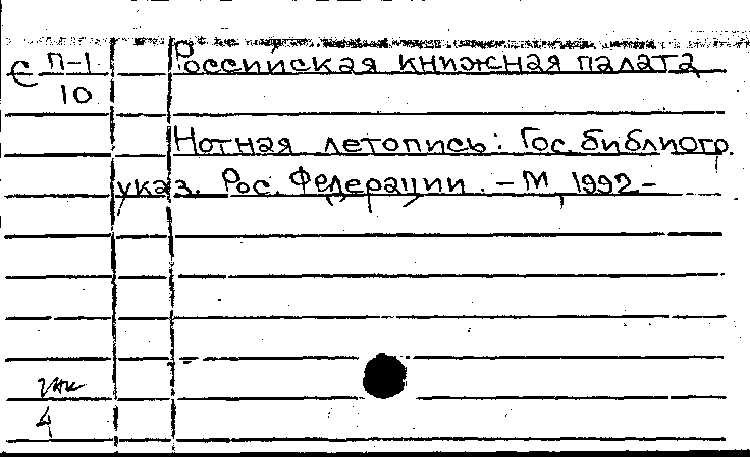 Є П-1
10
Российская книжная палата
Нотная летопись: Гос. библиогр.
указ. Рос. Федерации. - М, 1992 -
4